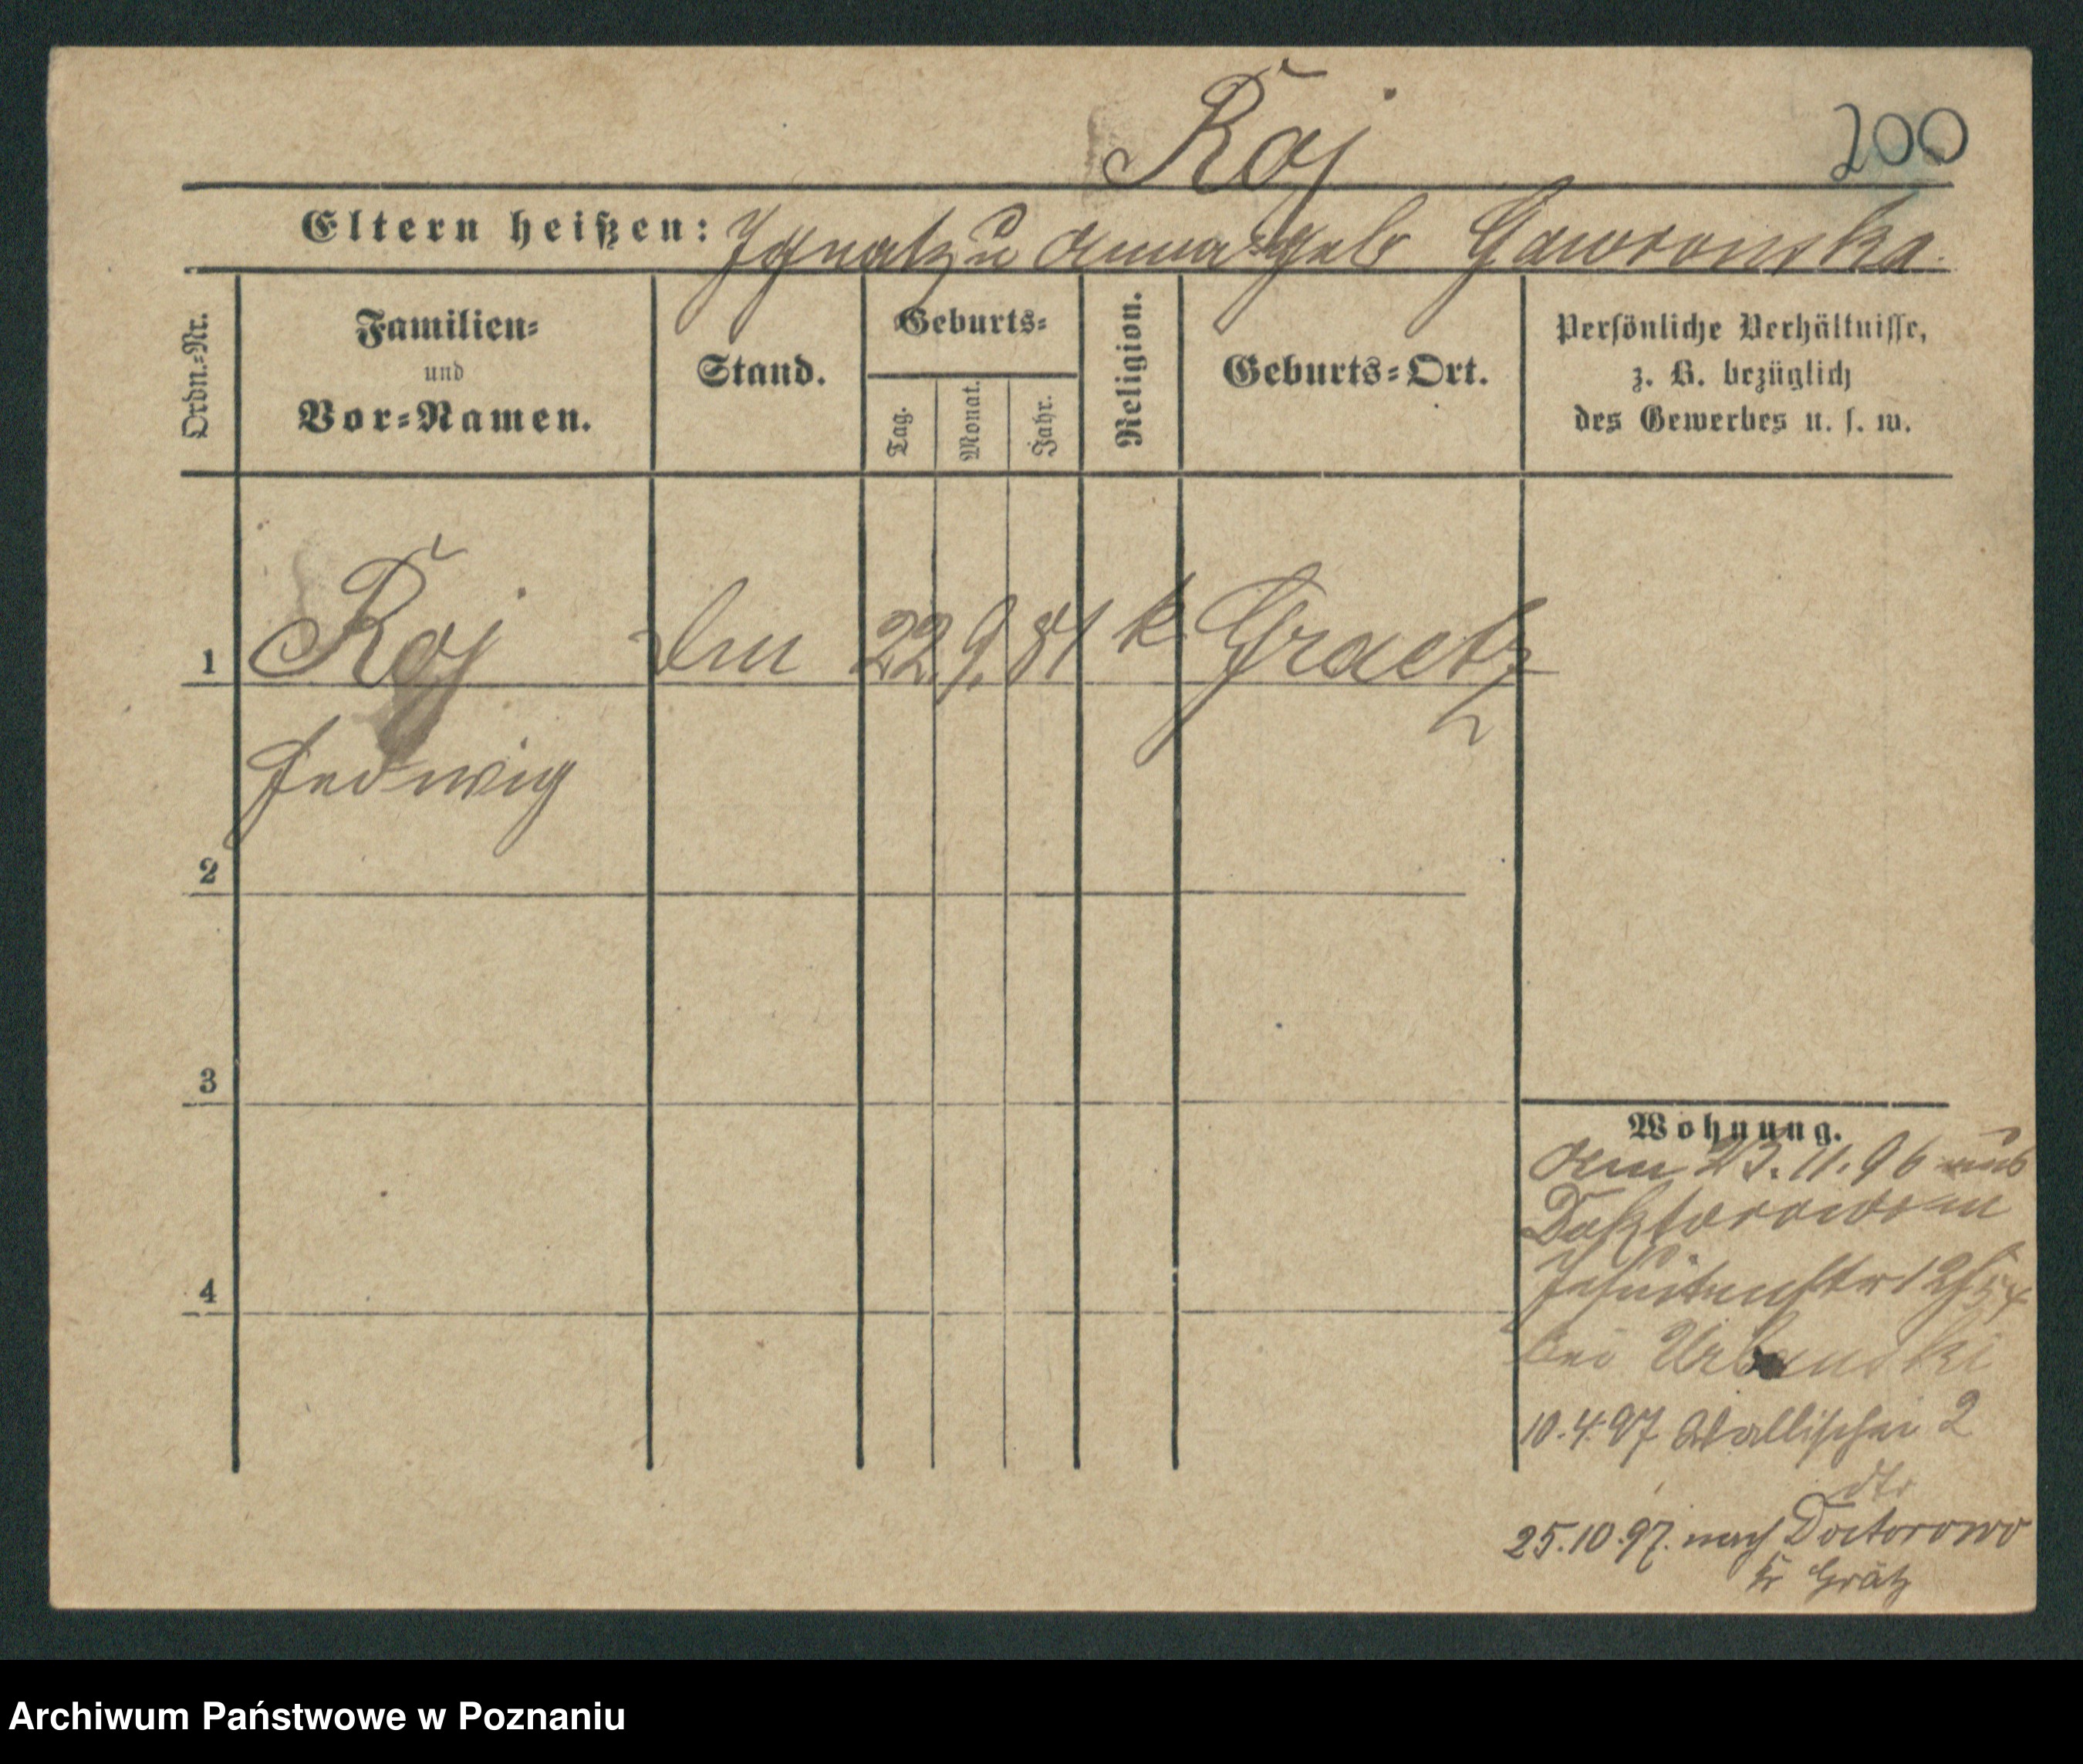 Roj
200
Eltern heißen: Ignatz u Anna geb Gaworonska.
Ordn.-Nr.
Familien-
und
Vor-Namen.
Stand.
Geburts-
Tag.
Monat.
Jahr.
Religion.
Geburts-Ort.
Persönliche Verhältnisse,
z. B. bezüglich
des Gewerbes u. s. w.
1 Roj 22. 9. 81 k. Graetz
Hedwig
2
3
4
Wohnung.
Am 23.11.96 aus
Doktorowo in
Jesuitenstr 12
bei Urbanski
10.4.97 Wallischei 2
25.10.97. nach Doctorowo
Kr Grätz
Archiwum Państwowe w Poznaniu